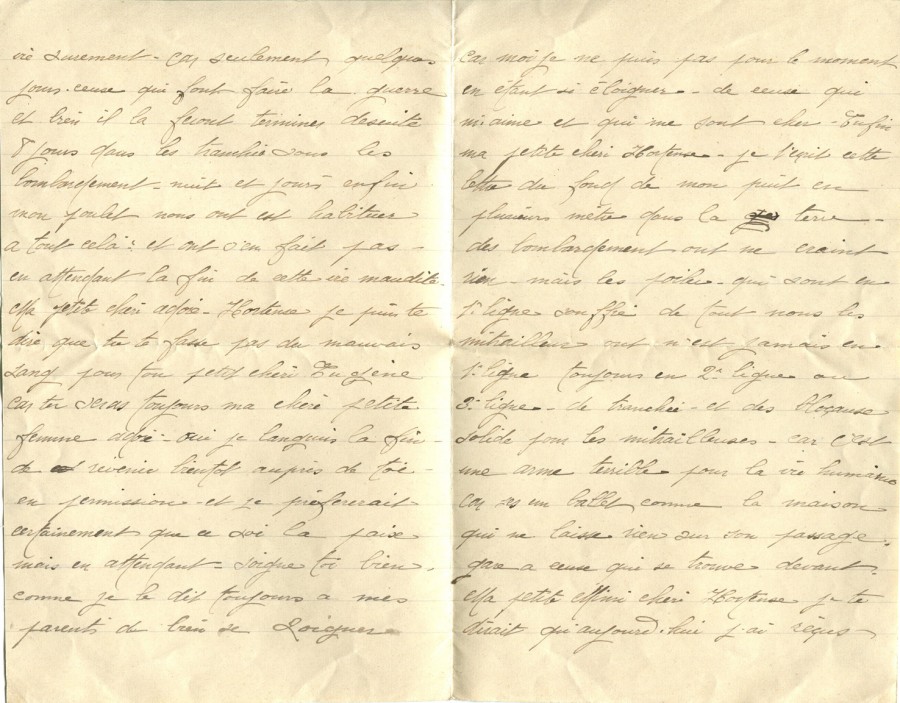 vie surement - car seulement quelques
jours. ceuse qui font faire la guerre
et bien il la feront termines desuite
8 jours dans les tranchée sous les
bombardement - nuit et jours enfin
mon poulet nous ont est habituer
a tout celà : et ont s'en fait pas -
en attendant la fin de cette vie maudite -
Ma petite chéri adoré - Hortense je puis te
dire que tu te fasse pas du mauvais
sang pour ton petit chéri Eugène
car ter seras toujours ma chéri petite
femme adoré - oui je languis la fin -
de revenir bientot auprès de toi -
en permission - et je prefererait
certainement que ce soi la paix
mais en attendant - soigne toi bien,
comme je le dit toujours a mes
parents de bien se soigner
car moi je ne puis pas pour le moment
en étant si éloigner - de ceuse qui
m'aime et qui me sont cher - Enfin
ma petite chéri Hortense - je t'écrit cette
lettre du fond de mon puit en
plusieurs mètre dans la terre -
des bombardement ont ne craint
rien - mais les poilus - qui sont en
1e ligne souffre de tout nous les
mitrailleur ont n'est jamais en
1e ligne toujours en 2e ligne ou
3e ligne - de tranchée - et des blocause
solide pour les mitrailleuses - car c'est
une arme terrible pour la vie humaine
car un ballet comme la maison
qui ne laisse rien sur son passage,
gare a ceuse qui se trouve devant.
Ma petite Mimi chéri Hortense je te
dirait qu'aujourd'hui j'ai reçus